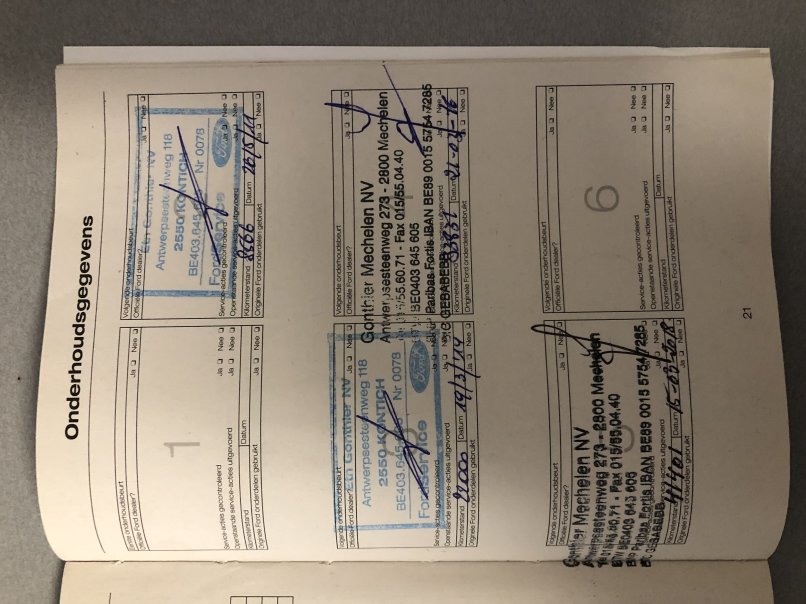 Onderhoudsgegevens
Eerste onderhoudsbeurt
Officiële Ford dealer? Ja Nee
1
Service-acties gecontroleerd Ja Nee
Openstaande service-acties uitgevoerd Ja Nee
Kilometerstand Datum
Originele Ford onderdelen gebruikt Ja Nee
Volgende onderhoudsbeurt
Officiële Ford dealer? Ja Nee
Etn Gonthier NV
Antwerpsesteenweg 118
2550 KONTICH
BE403.645.605 Nr 0078
FordService Ford
Service-acties gecontroleerd Ja Nee
Openstaande service-acties uitgevoerd Ja Nee
Kilometerstand 8566 Datum 26/5/11
Originele Ford onderdelen gebruikt Ja Nee
Volgende onderhoudsbeurt
Officiële Ford dealer? Ja Nee
Etn Gonthier NV
Antwerpsesteenweg 118
2550 KONTICH
BE403.645.605 Nr 0078
3
FordService Ford
Service-acties gecontroleerd Ja Nee
Openstaande service-acties uitgevoerd Ja Nee
Kilometerstand 22000 Datum 19/3/14
Originele Ford onderdelen gebruikt Ja Nee
Volgende onderhoudsbeurt
Officiële Ford dealer? Ja Nee
Gonthier Mechelen NV
Antwerpsesteenweg 273 - 2800 Mechelen
015/55.60.71 - Fax 015/55.04.40
BTW BE0403 645 605
BNP Paribas Fortis IBAN BE89 0015 5754 7285
BIC GEBABEBB
Openstaande service-acties uitgevoerd Ja Nee
Kilometerstand 33831 Datum 21-03-16
Originele Ford onderdelen gebruikt Ja Nee
Volgende onderhoudsbeurt
Officiële Ford dealer? Ja Nee
Gonthier Mechelen NV
Antwerpsesteenweg 273 - 2800 Mechelen
Tel 015/55.60.71 - Fax 015/55.04.40
BTW BE0403 645 605
BNP Paribas Fortis IBAN BE89 0015 5754 7285
BIC GEBABEBB
service-acties uitgevoerd Ja Nee
Kilometerstand 41401 Datum 15-03-2018
Originele Ford onderdelen gebruikt Ja Nee
Volgende onderhoudsbeurt
Officiële Ford dealer? Ja Nee
6
Service-acties gecontroleerd Ja Nee
Openstaande service-acties uitgevoerd Ja Nee
Kilometerstand Datum
Originele Ford onderdelen gebruikt Ja Nee
21